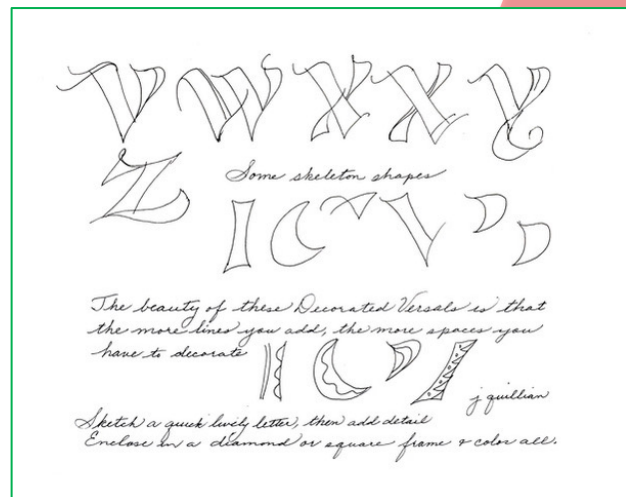 V W X X Y
Z
Some skeleton shapes
The beauty of these Decorated Versals is that
the more lines you add, the more spaces you
have to decorate
j quillian
Sketch a quick lively letter, then add detail
Enclose in a diamond or square frame & color all.